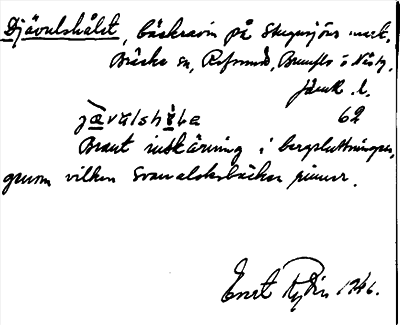 Djävulshålet, bäckravin på Stugusjöns mark,
Bräcke sn, Refsunds, Brunflo o Näs tg,
Jämtl. l.
jävəlshålə 62
Brant inskärning i bergsluttningen,
genom vilken Svanalokbäcken rinner.
Ernst 1946.